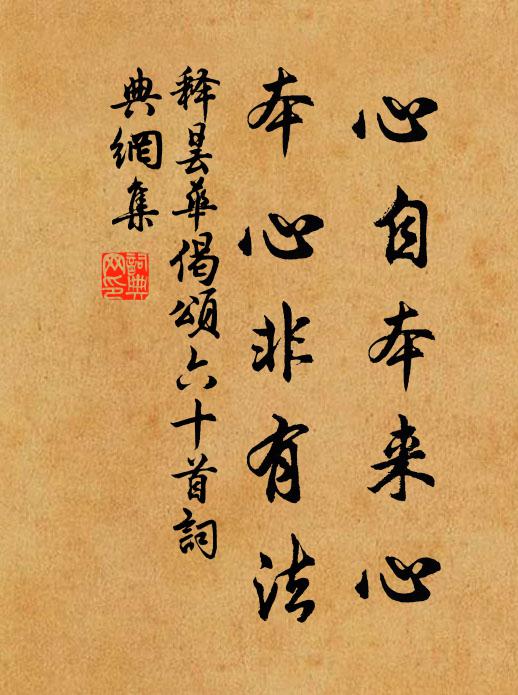 心自本来心
本心非有法
释昙华偈頌六十首詞
典網集
詞典网印